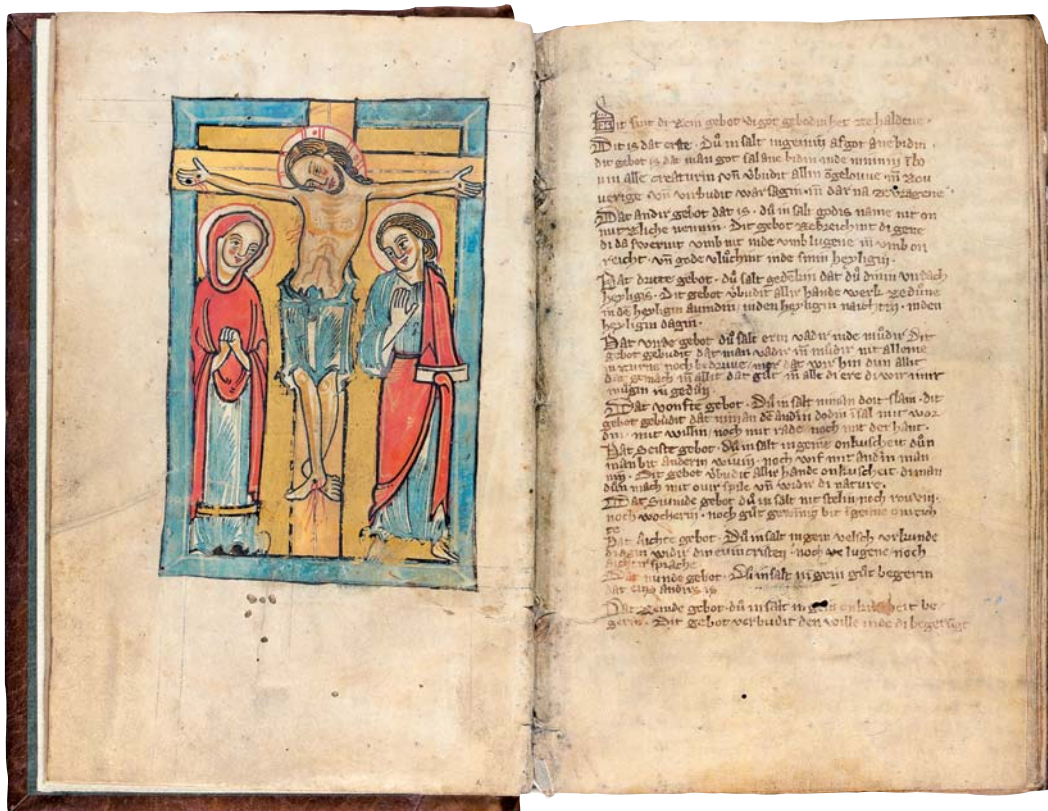 Dit sint di zein gebot di got gebodin het ze haldene.
Dit is dat erste. Dů in salt ingeinin afgot anebidin.
dit gebot is dat man got sal ane bidin inde minnin
alle creaturin vñ v̓budit allin
vñ virbudit war sagin. dar na
Dat andir gebot dat is. dů in salt godis name nit on
nutzliche nennin. Dit gebot zebrichint di gene
di da sverint vmb nit inde vmb lugene vmb on
reicht. vñ gode vlůchint inde sinin heyligin.
Dat dritte gebot. dů salt gedenkin dat dů dinin virdach
heyligis. Dit gebot v̓budit allir hande werk ze důne
heyligin inden heyligin inden
heyligin dagin.
Dat virde gebot dů salt erin vadir inde můdir Dit
gebot gebudit dat man vadir vñ můdir nit alleine
noch bedruve. mer dat wir hin dun allit
dat gemach vñ allit dat gůt vñ alle di ere di wir imir
mugin in gedůn
Dat vonfte gebot. Dů in salt niman doit slain. dit
gebot gebudit dat niman dē andirn dodin sal mit wor
din. mit willin. noch mit rade. noch mit der hant.
Dat seiste gebot. Dů in salt ingeine onkuscheit důn
man bit anderin wivin. noch wif mit andirn man
nin. Dit gebot v̓budit allir hande onkuscheit di man
důn mach mit ovir spile vñ widir di nature.
Dat sivinde gebot dů in salt nit stelin noch rovvin.
noch wocherin. noch gůt gewinnig bit onreich
te
Dat aichte gebot. Dů in salt ingein velsch vrkunde
dragin widir din evincristen. noch ze lugene. noch
sprache
Dat nunde gebot. Dů in salt ingein gůt begerin
dat eins andirs is
Dat zeinde gebot. dů in salt in gein onkuscheit be
gerin. Dit gebot verbudit den wille inde di begerůgt